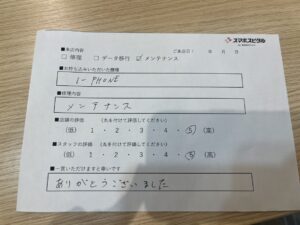 スマホスピタル
■来店内容 ご来店日: 年 月 日
□修理 □データ移行 ☑メンテナンス
■お持ち込みいただいた機種
i-PHONE
■修理内容
メンテナンス
■店舗の評価 (丸を付けて評価してください)
(低) 1 ・ 2 ・ 3 ・ 4 ・ 5 (高)
■スタッフの評価 (丸を付けて評価してください)
(低) 1 ・ 2 ・ 3 ・ 4 ・ 5 (高)
■一言いただけますと幸いです
ありがとうございました